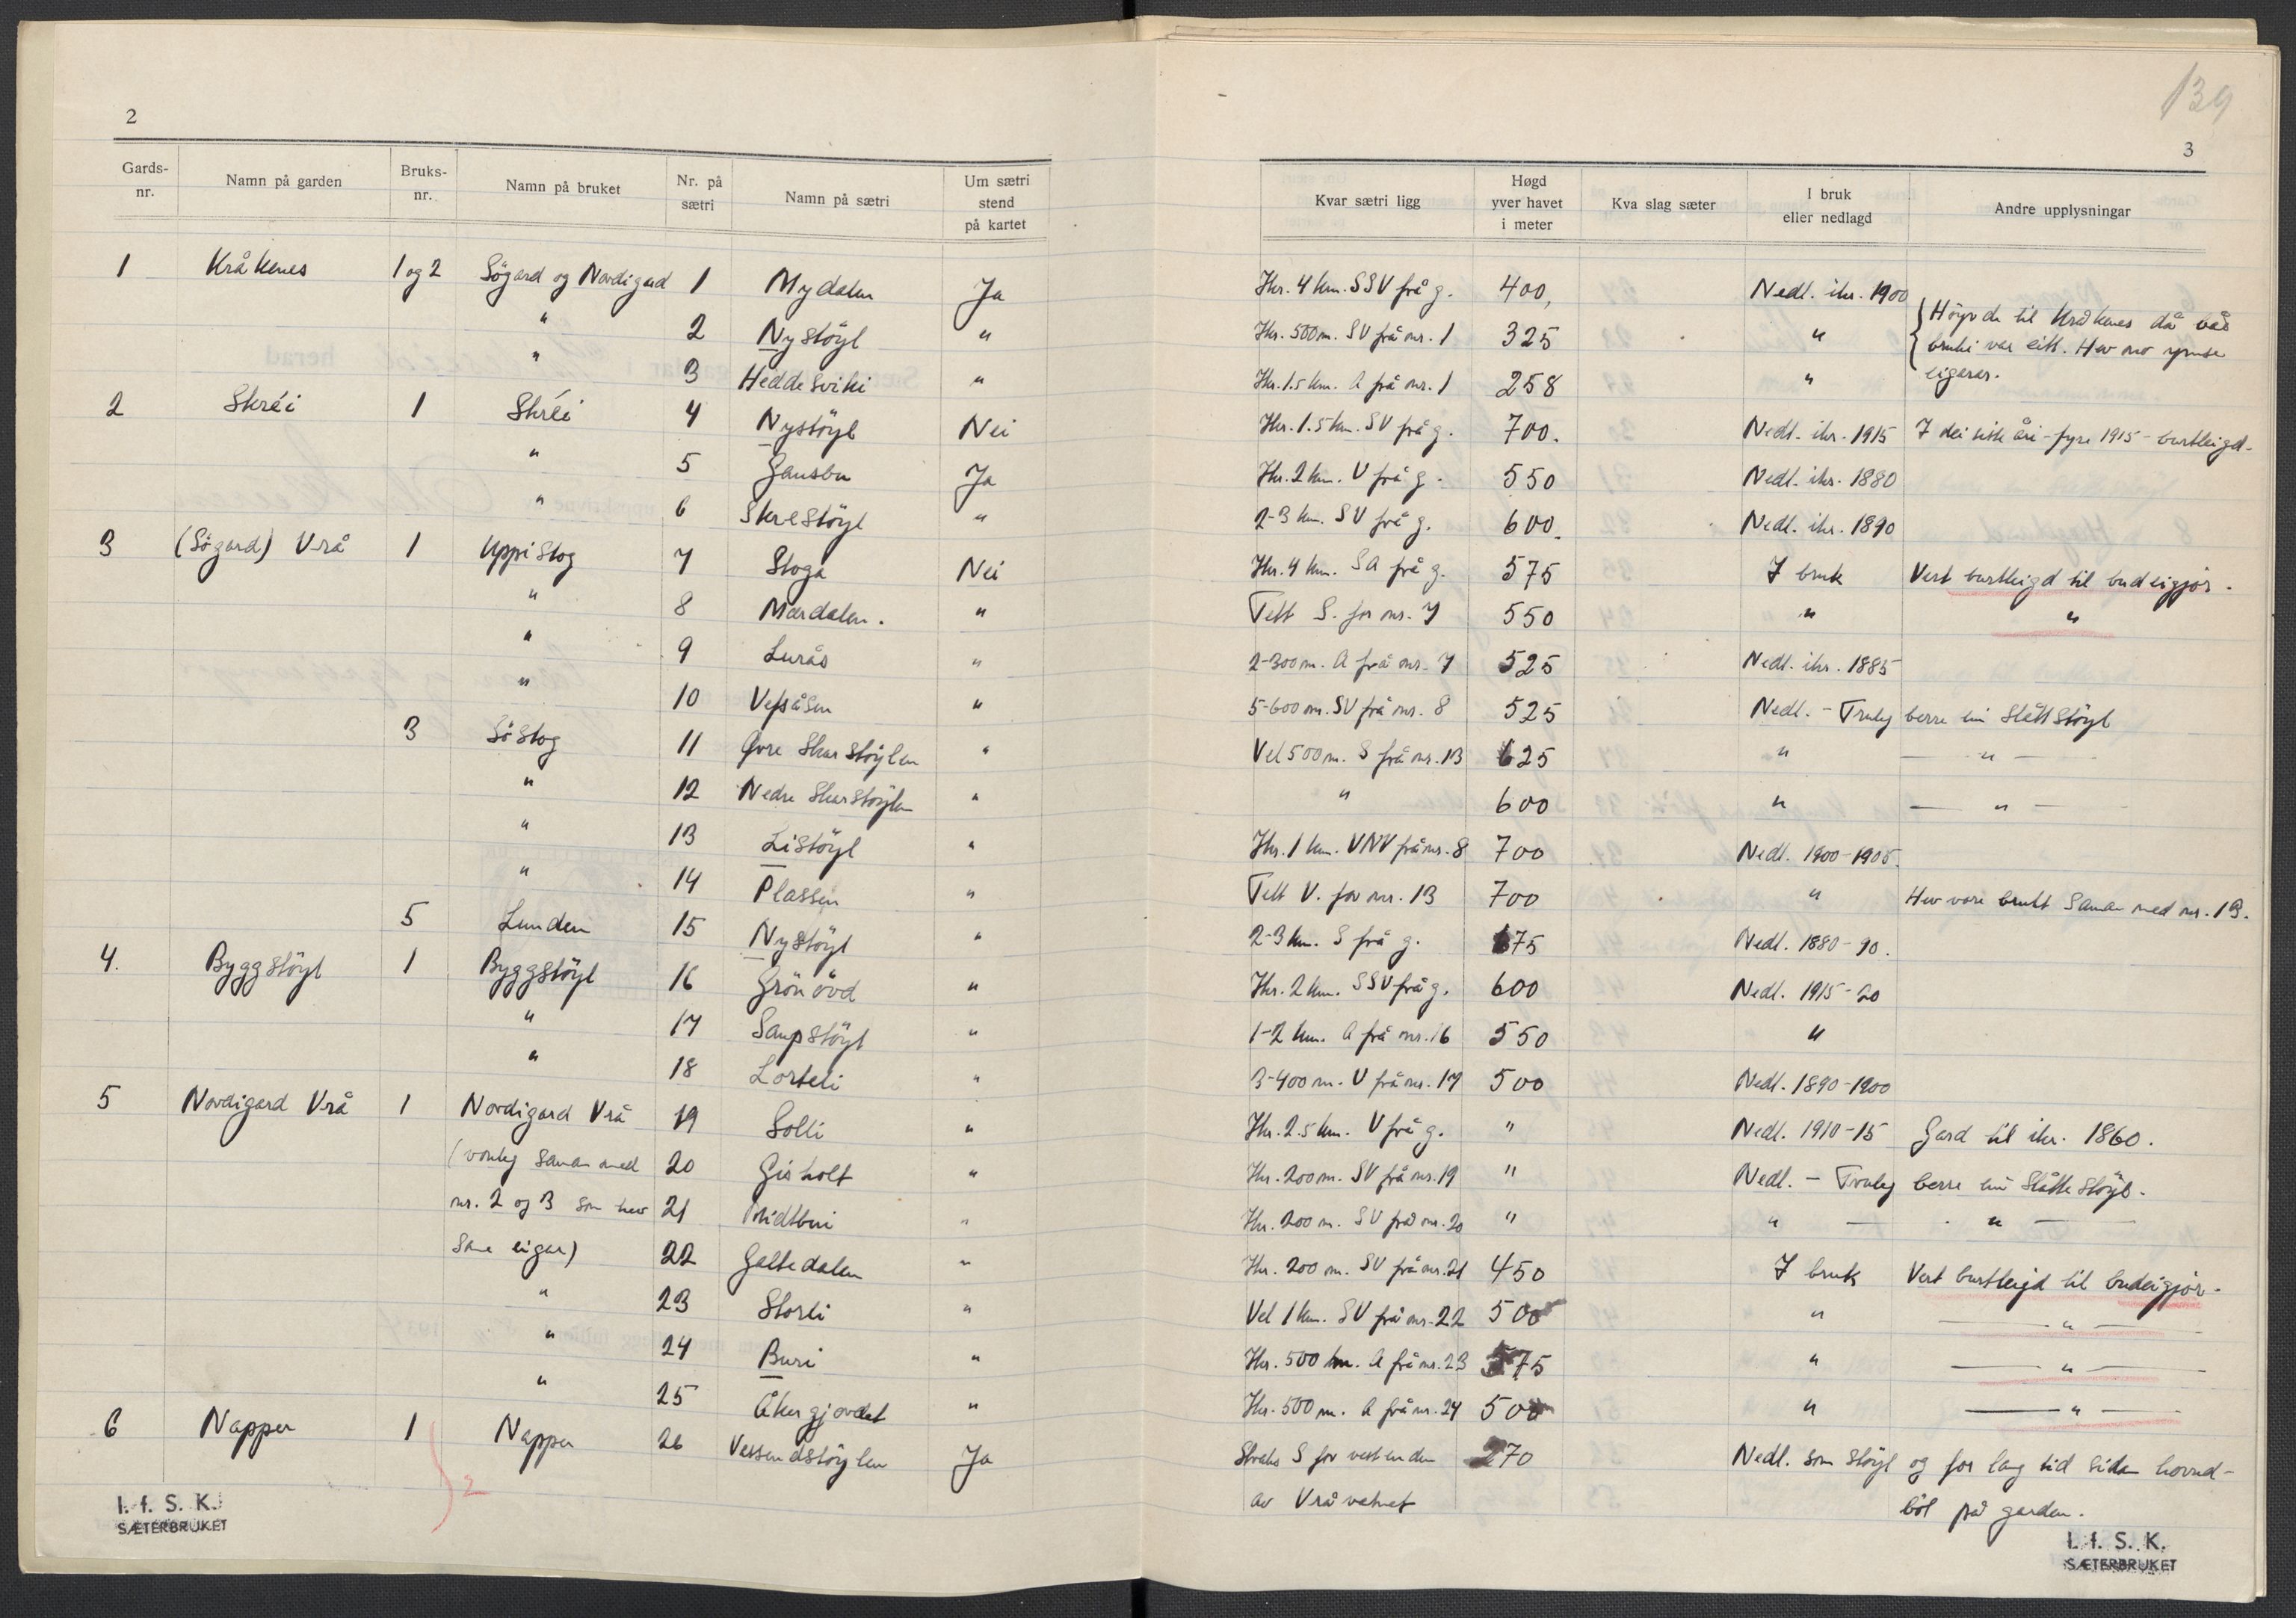 139
2
3
Gards-nr. Namn på garden Bruks-nr. Namn på bruket Nr. på sætri Namn på sætri Um sætri stend på kartet Kvar sætri ligg Høgd yver havet i meter Kva slag sæter I bruk eller nedlagd Andre upplysningar
1 Kråkenes 1 og 2 Sögard og Nordigard 1 Mydalen Ja Ikr. 4 km. SSV frå g. 400, Nedl. ikr. 1900 Höyrde til Kråkenes då
" 2 Nystöyl " Ikr. 500 m. SV frå nr. 1 325 " bruki var eitt. Hev no ymse
" 3 Heddesviki " Ikr. 1.5 km. A frå nr. 1 258 " eigarar.
2 Skréi 1 Skréi 4 Nystöyl Nei Ikr. 1.5 km. SV frå g. 700. Nedl. ikr. 1915 I dei siste åri fyre 1915 - burtleigd.
" 5 Gausbu Ja Ikr. 2 km. V frå g. 550 Nedl. ikr. 1880
" 6 Skrestöyl " 2-3 km. SV frå g. 600. Nedl. ikr. 1890
3 (Sögard) Vrå 1 Uppistog 7 Stoga Nei Ikr. 4 km. SA frå g. 575 I bruk Vert burtleigd til budeigjor.
" 8 Mærdalen. " Tett S. for nr. 7 550 " "
" 9 Lurås " 2-300 m. A frå nr. 7 525 Nedl. ikr. 1885
" 10 Vefsåsen " 5-600 m. SV frå nr. 8 525 Nedl. - Truleg berre ein slåttstöyl
3 Söstog 11 Övre Skarstöylen " Vel 500 m. S frå nr. 13 625 " — " —
" 12 Nedre Skarstöylen " " 600 " — " —
" 13 Listöyl " Ikr. 1 km. VNV frå nr. 8 700 Nedl. 1900-1905.
" 14 Plassen " Tett V. for nr. 13 700 " Hev vore brukt saman med nr. 13.
5 Lunden 15 Nystöyl " 2-3 km. S frå g. 675 Nedl. 1880-90.
4. Byggstöyl 1 Byggstöyl 16 Grönövd " Ikr. 2 km. SSV frå g. 600 Nedl. 1915-20
" 17 Saupstöyl " 1-2 km. A frå nr. 16 550 "
" 18 Lorteli " 3-400 m. V frå nr. 17 500 Nedl. 1890-1900
5 Nordigard Vrå 1 Nordigard Vrå 19 Solli " Ikr. 2.5 km. V frå g. " Nedl. 1910-15 Gard til ikr. 1860.
(vorley saman med 20 Gisholt " Ikr. 200 m. SV frå nr. 19 " Nedl. - Truleg berre ein slåttestöyl.
nr. 2 og 3 som hev 21 Midtbui " Ikr. 200 m. SV frå nr. 20 " " — " —
same eigar) 22 Galtedalen " Ikr. 200 m. SV frå nr. 21 450 I bruk Vert burtleigd til budeigjor.
" 23 Storli " Vel 1 km. SV frå nr. 22 500 " — " —
" 24 Buri " Ikr. 500 m. A frå nr. 23 575 " — " —
" 25 Åkergjordet " Ikr. 500 m. A frå nr. 24 500 " — " —
6 Napper 1 Napper 26 Vessendstöylen Ja Straks S for vestenden 270 Nedl. som stöyl og for lang tid sidan hovud-
2 av Vråvatnet böl på garden.
I. f. S. K.
SÆTERBRUKET
I. f. S. K.
SÆTERBRUKET